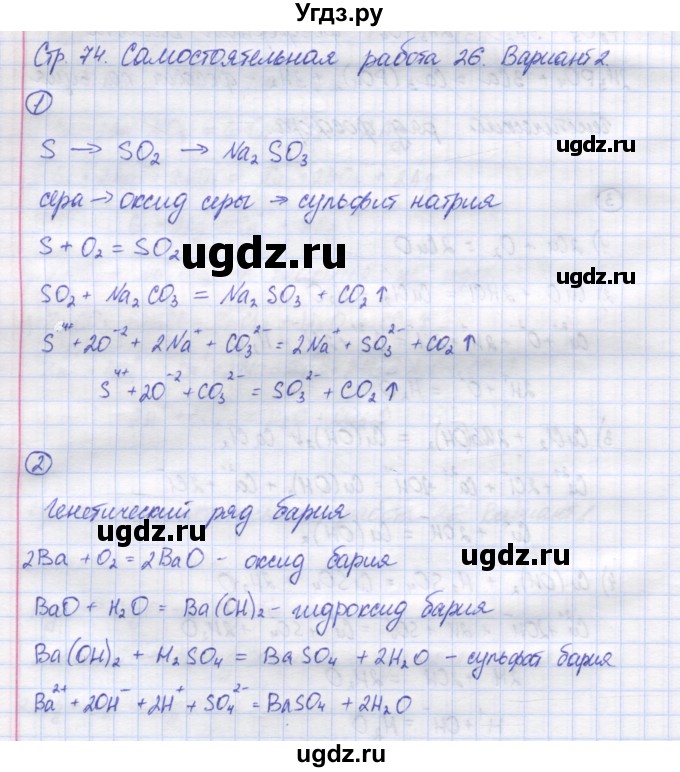 Угдз.ру
Стр. 74. Самостоятельная работа 26. Вариант 2.
1
S → SO₂ → Na₂SO₃
ugdz.ru
сера → оксид серы → сульфит натрия
S + O₂ = SO₂
ugdz.ru
ugdz.ru
SO₂ + Na₂CO₃ = Na₂SO₃ + CO₂↑
S⁴⁺ + 2O⁻² + 2Na⁺ + CO₃²⁻ = 2Na⁺ + SO₃²⁻ + CO₂↑
S⁴⁺ + 2O⁻² + CO₃²⁻ = SO₃²⁻ + CO₂↑
2
Генетический ряд бария
ugdz.ru
ugdz.ru
2Ba + O₂ = 2BaO - оксид бария
BaO + H₂O = Ba(OH)₂ - гидроксид бария
Ba(OH)₂ + H₂SO₄ = BaSO₄ + 2H₂O - сульфат бария
Ba²⁺ + 2OH⁻ + 2H⁺ + SO₄²⁻ = BaSO₄ + 2H₂O
ugdz.ru